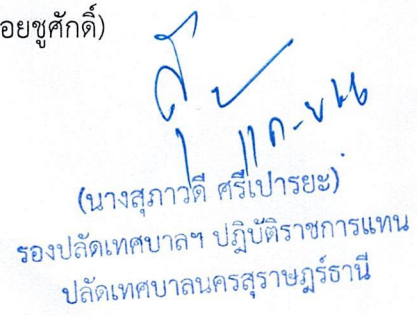 อยชูศักดิ์)
(นางสุภาวดี ศรีเปารยะ)
รองปลัดเทศบาลฯ ปฏิบัติราชการแทน
ปลัดเทศบาลนครสุราษฎร์ธานี